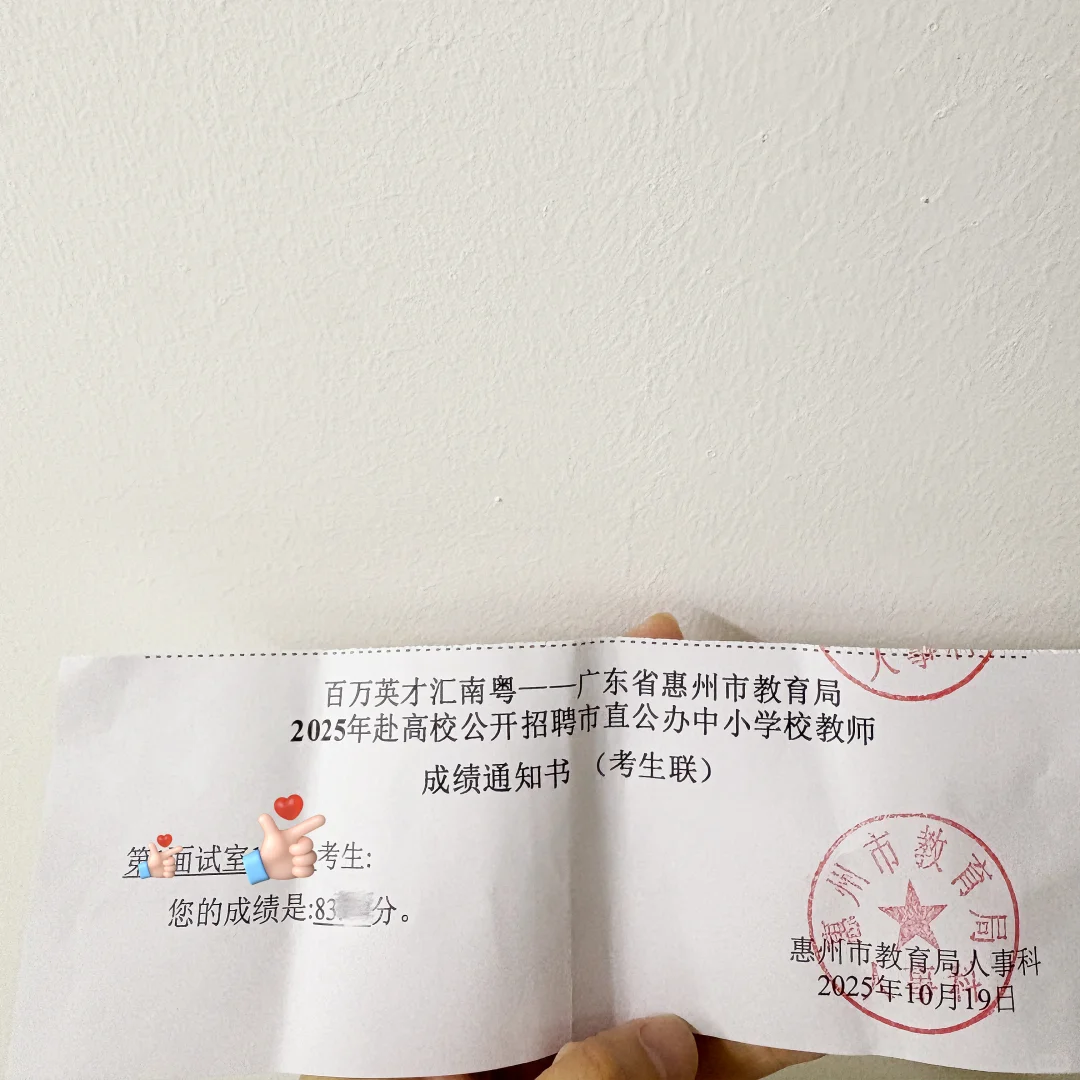 百万英才汇南粤——广东省惠州市教育局
2025年赴高校公开招聘市直公办中小学校教师
成绩通知书（考生联）
第 面试室 考生:
您的成绩是:83 分。
惠州市教育局
人事科
惠州市教育局人事科
2025年10月19日
人事科